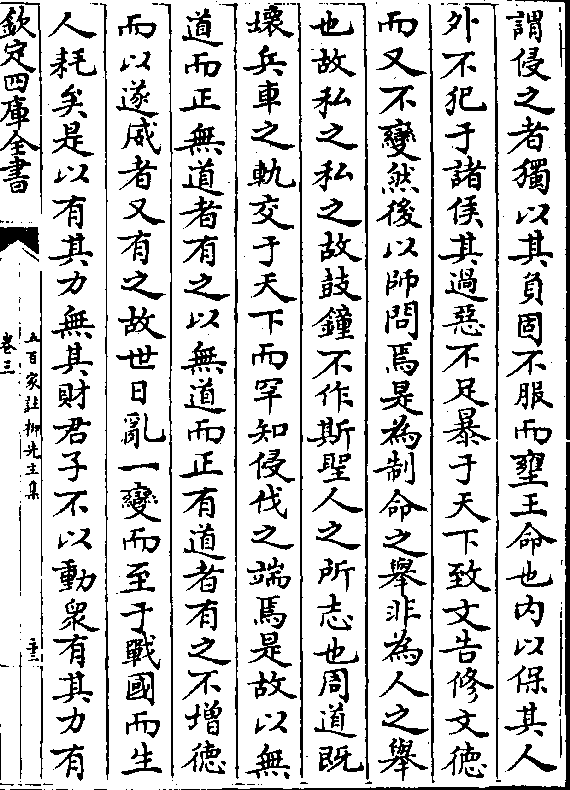 謂侵之者獨以其負固不服而壅王命也内以保其人
外不犯于諸侯其過惡不足暴于天下致文告修文德
而又不變然後以師問焉是為制命之舉非為人之舉
也故私之私之故鼓鐘不作斯聖人之所志也周道既
壞兵車之軌交于天下而罕知侵伐之端焉是故以無
道而正無道者有之以無道而正有道者有之不增德
而以遂威者又有之故世日亂一變而至于戰國而生
人耗矣是以有其力無其財君子不以動衆有其力有
欽定四庫全書
五百家註柳先生集
卷三